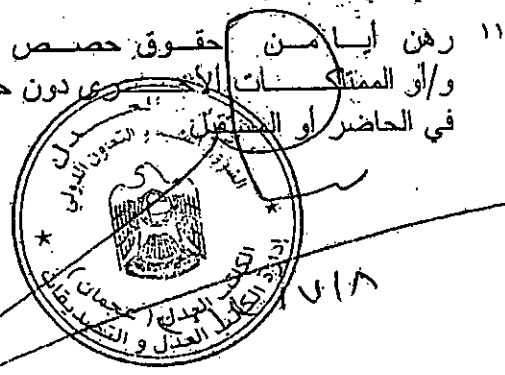 ١١ رهن أيا من حقوق حصص
و/أو الممتلكات الأخرى دون
في الحاضر أو المستقبل
العدل
والتعاون الدولي
الكاتب العدل (عجمان)
إدارة الكاتب العدل و التصديقات
٧/٨